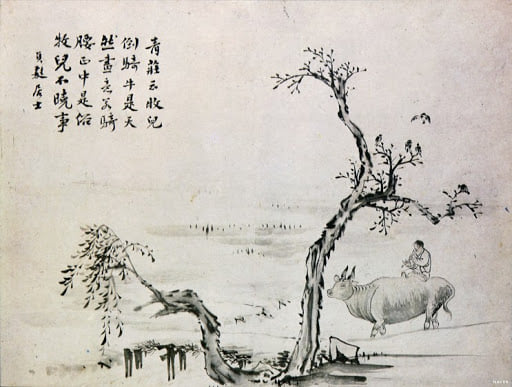 青莊云牧兒
倒騎牛是天
然畫意若騎
腰正中是俗
牧兒不曉事
貞蕤居士